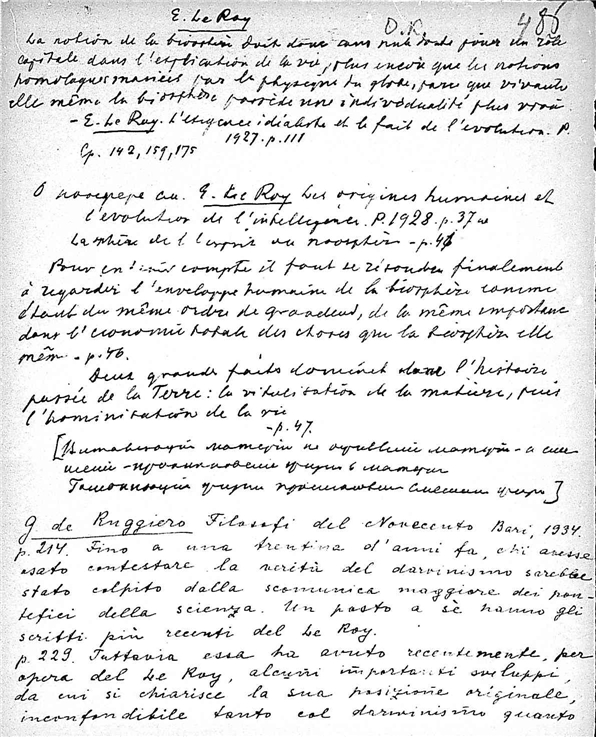 E. Le Roy
486
La notion de la biosphère doit donc sans nul doute jouer un rôle
capitale dans l'explication de la vie, plus encore que les notions
homologues maniées par la physique du globe, parce que vivante
elle même la biosphère possède une individualité plus vraie.
- E. Le Roy. L'exigence idéaliste et le fait de l'évolution. P.
1927. p. 111
Ср. 142, 159, 175
О ноосфере см. E. Le Roy Les origines humaines et
l'évolution de l'intelligence. P. 1928. p. 37
La sphère de l'esprit ou noosphère - p. 46
Pour en compte il faut se résoudre finalement
à regarder l'enveloppe humaine de la biosphère comme
étant du même ordre de grandeur, de la même importance
dans l'économie totale des choses que la biosphère elle
mêm - p. 46.
Deux grands faits dominent dans l'histoire
passée de la Terre: la vitalisation de la matière, puis
l'hominisation de la vie
- p. 47.
материи не материи - а
в материи
G de Ruggiero Filosofi del Novecento Bari, 1934.
p. 214. Fino a una trentina d'anni fa, chi avesse
osato contestare la verità del darvinismo sarebbe
stato colpito dalla scomunica maggiore dei pon-
tefici della scienza. Un posto a sè hanno gli
scritti più recenti del Le Roy.
p. 229. Tuttavia essa ha avuto recentemente, per
opera del Le Roy, alcuni importanti sviluppi,
da cui si chiarisce la sua posizione originale,
inconfondibile tanto col darwinismo quanto